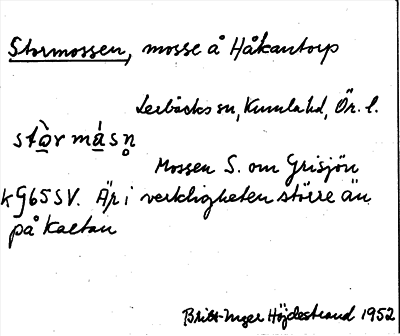 Stormossen, mosse å Håkantorp
Lerbäcks sn, Kumla hd, Ör. l.
stòr màsn̥
Mossen S. om Grisjön
kg65SV. Är i verkligheten större än
på kartan
Britt-Inger Höjdestrand 1952